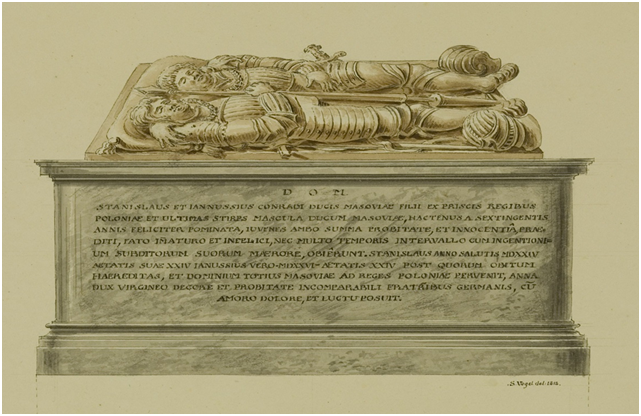 D O M
STANISLAUS ET IANNUSSIUS CONRADI DUCIS MASOVIAE FILII EX PRISCIS REGIBUS
POLONIAE ET ULTIMAS STIRPS MASCULA DUCUM MASOVIAE, HACTENUS A SEXTINGENTIS
ANNIS FELICITER POMINATA, IUVENES AMBO SUMMA PROBITATE, ET INNOCENTIÂ PRÆ-
DITI, FATO IMATURO ET INFELICI, NEC MULTO TEMPORIS INTERVALLO CUM INGENTIONI-
UM SUBDITORUM SUORUM MÆRORE, OBIERUNT. STANISLAUS ANNO SALUTIS MDXXIV
AETATIS SUAE XXIV IANUSSIUS VERO-MDXXVI-AETATIS-XXIV POST QUORUM OBITUM
HAEREDITAS, ET DOMINIUM TOTIUS MASOVIAE AD REGES POLONIAE PERVENIT, ANNA
DUX VIRGINEO DECORE ET PROBITATE INCOMPARABILI FRATRIBUS GERMANIS, CŨ
AMORO DOLORE, ET LUCTU POSUIT.
S. Vogel del: